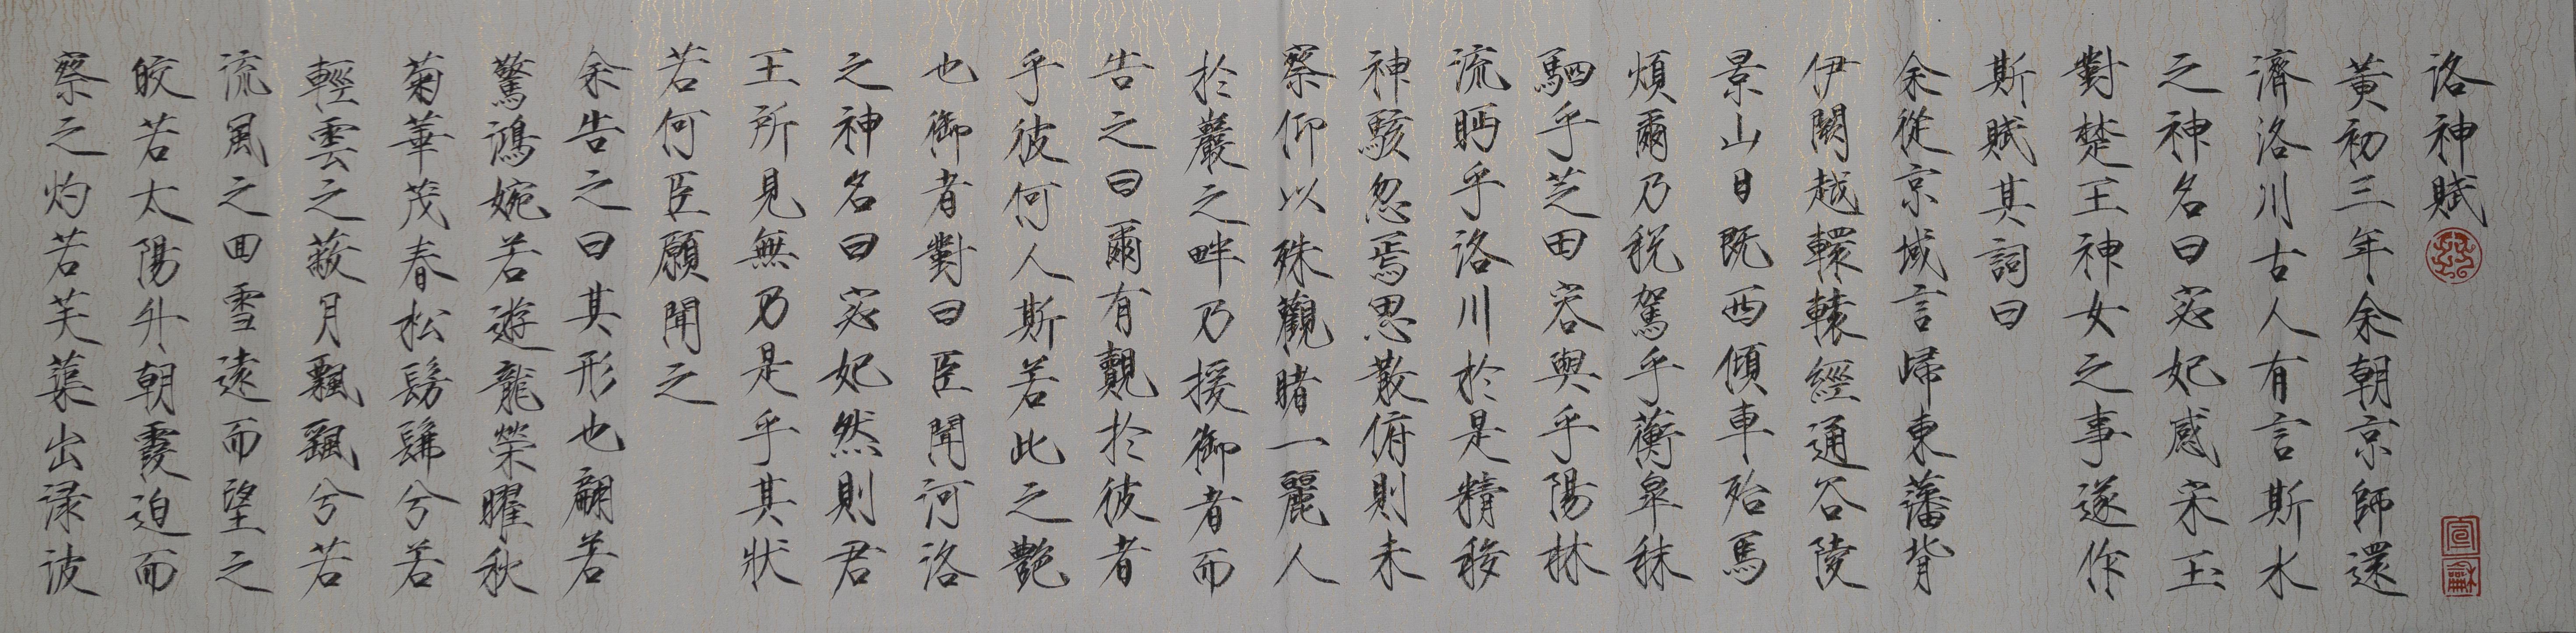 洛神賦
黃初三年余朝京師還
濟洛川古人有言斯水
之神名曰宓妃感宋玉
對楚王神女之事遂作
斯賦其詞曰
余從京域言歸東藩背
伊闕越轘轅經通谷陵
景山日既西傾車殆馬
煩爾乃稅駕乎蘅皋秣
駟乎芝田容與乎陽林
流眄乎洛川於是精移
神駭忽焉思散俯則未
察仰以殊觀睹一麗人
於巖之畔乃援御者而
告之曰爾有覿於彼者
乎彼何人斯若此之艷
也御者對曰臣聞河洛
之神名曰宓妃然則君
王所見無乃是乎其狀
若何臣願聞之
余告之曰其形也翩若
驚鴻婉若遊龍榮曜秋
菊華茂春松髣髴兮若
輕雲之蔽月飄飖兮若
流風之回雪遠而望之
皎若太陽升朝霞迫而
察之灼若芙蕖出淥波